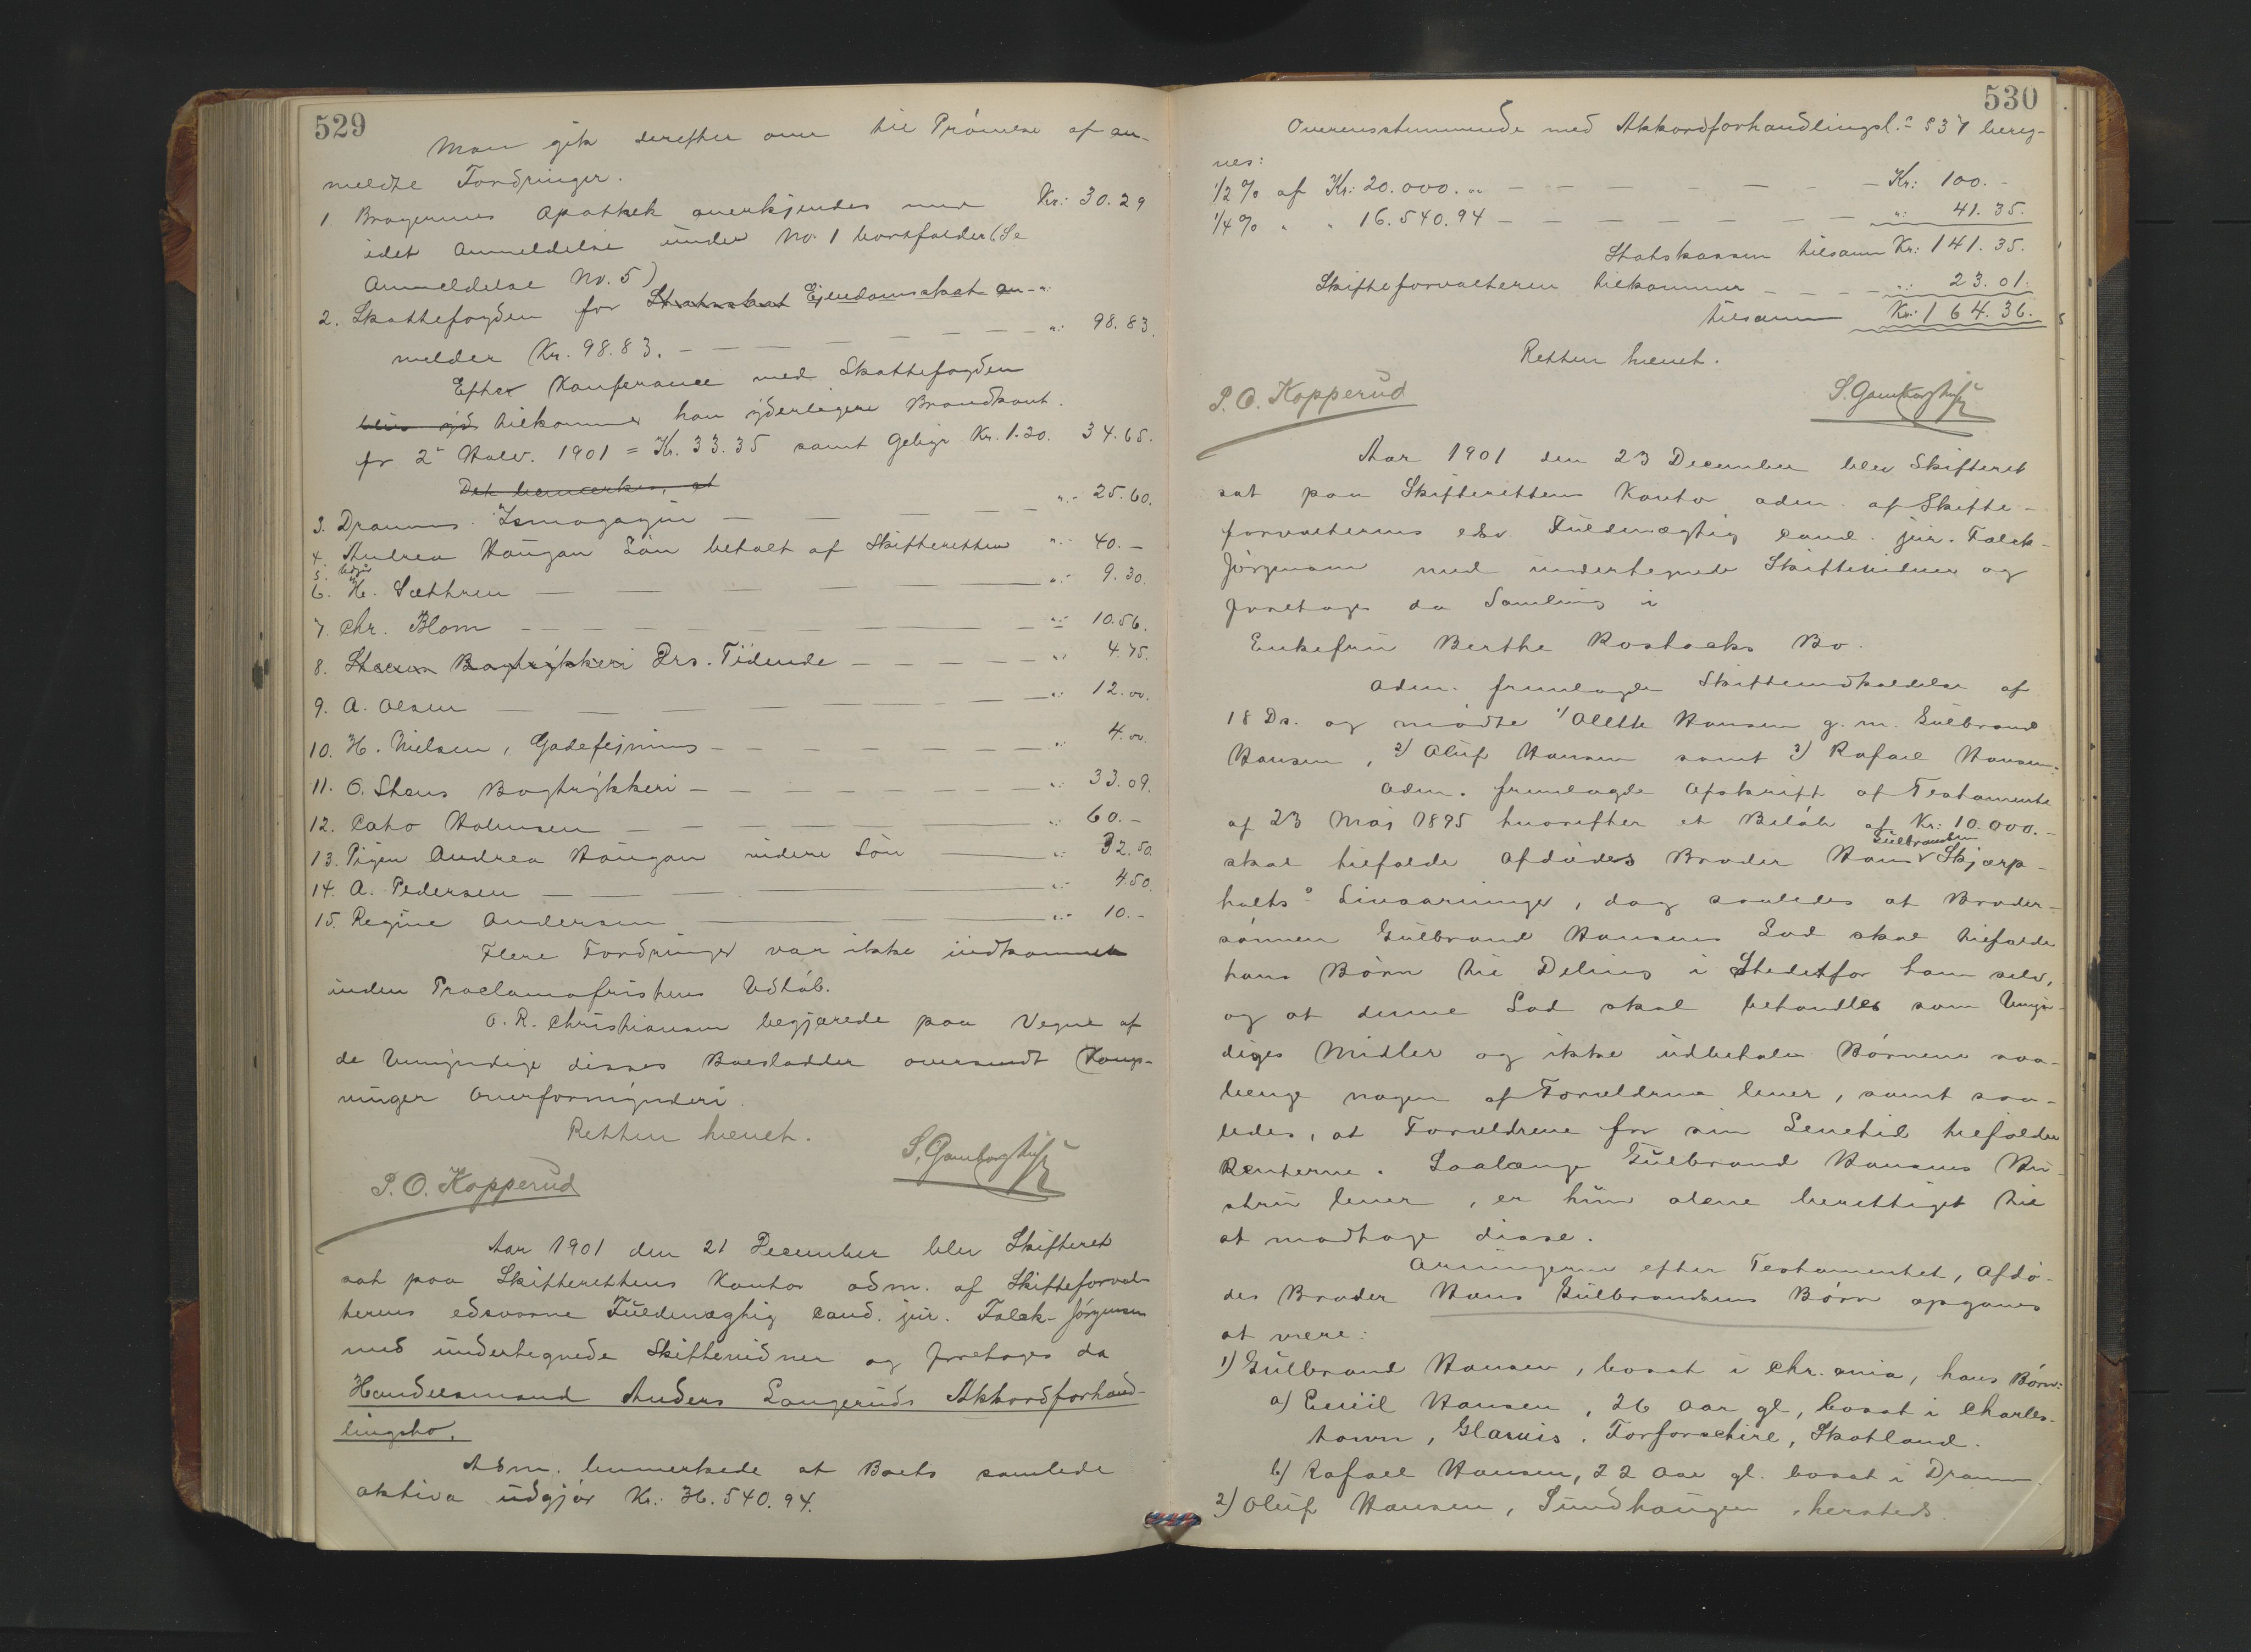 529
Man gik derefter over til Prövelse af an-
meldte Fordringer.
1. Bragernes Apothek anerkjendes med Kr: 30.29
idet Anmeldelse under No 1 bortfalder (Se
Anmeldelse No. 5)
2. Skattefogden for Statsskat Ejendomsskat an-
melder Kr. 98.83. — — — — — " 98.83.
Efter Konferance med Skattefogden
blir yd tilkommer ham yderligere Brandkont.
for 2det Halv. 1901 = Kr. 33.35 samt Gebyr Kr. 1.30. 34.65.
Det bemærkes, at
3. Drammens Ismagazin — — — — " 25.60.
4. Andrea Haugan Lön betalt af Skifteretten " 40.—
5. udgår
6. H. Sæthren — — — — — " 9.30.
7. Chr. Blom — — — — — " 10.56.
8. Steens Bogtrykkeri Drs. Tidende — — — — " 4.75.
9. A. Olsen — — — — — " 12.00.
10. H. Nielsen, Gadefejning — — — — — " 4.00.
11. O. Steens Bogtrykkeri — — — — — " 33.09.
12. Cato Holmsen — — — — — " 60.—
13. Pigen Andrea Haugan videre Lön — " 32.50.
14. A. Pedersen — — — — — " 4.50.
15. Regine Andersen — — — " 10.-
Flere Fordringer var ikke indkommet
inden Proclamafristens Udløb.
O. R. Christiansen begjærede paa Vegne af
de Umyndige disses Boeslodder oversendt Kaup-
anger Overformynderi.
Retten hævet.
P. O. Kopperud S. Gamborg
Aar 1901 den 21 December blev Skifteret
sat paa Skifterettens Kontor adm. af Skifteforval-
terens edsvorne Fuldmægtig cand. jur. Falck-Jörgensen
med undertegnede Skiftevidner og foretoges da
Handelsmand Anders Langeruds Akkordforhand-
lingsbo.
Adm. bemærkede at Boets samlede
aktiva udgjør Kr.: 36.540.94.
530
Overensstemmende med Akkordforhandlingsl.s § 37 bereg-
nes:
1/2 % af Kr: 20.000.00 — — — — — — Kr: 100.-
1/4 % " " 16.540.94 — — — — — — " 41.35.
Statskassen tilsamm Kr: 141.35.
Skifteforvalteren tilkommer — — — — " 23.01.
tilsamm Kr: 164.36.
Retten hævet.
P. O. Kopperud S. Gamborg
Aar 1901 den 23 December blev Skifteret
sat paa Skifterettens Kontor adm. af Skifte-
forvalterens edsv. Fuldmægtig cand. jur. Falck-
Jörgensen med undertegnede Skiftevidner og
foretoges da Samling i
Enkefru Berthe Rostocks Bo.
Adm. fremlagde Skifteindkaldelse af
18 Ds. og mödte 1/ Olette Hansen g. m. Gulbrand
Hansen, 2/ Oluf Hansen samt 3/ Rafael Hansen.
Adm. fremlagde Afskrift af Testamente
af 23 Maj 1895 hvorefter et Belöb af Kr: 10.000.-
skal tilfalde Afdödes Broder Hans Gulbrandsen Skjærp-
holts Livsarvinger, dog saaledes at Broder-
sönnen Gulbrand Hansens Lod skal tilfalde
hans Börn til Deling i Stedetfor ham selv,
og at denne Lod skal behandles som Umyn-
diges Midler og ikke udbetales Börnene saa-
længe nogen af Forældrene lever, samt saa-
ledes, at Forældrene for sin Levetid tilfalder
Renterne. Saalænge Gulbrand Hansens Hu-
stru lever, er hun alene berettiget til
at modtage disse.
Arvingerne efter Testamentet, Afdö-
des Broder Hans Gulbrandsens Börn opgaves
at være:
1) Gulbrand Hansen, bosat i Chr.ania, hans Börn:
a) Emil Hansen, 26 Aar gl, bosat i Charles-
town, Glamis, Forforschire, Skotland.
b) Rafael Hansen, 22 Aar gl. bosat i Dramm
2) Oluf Hansen, Sundhaugen, hersteds.